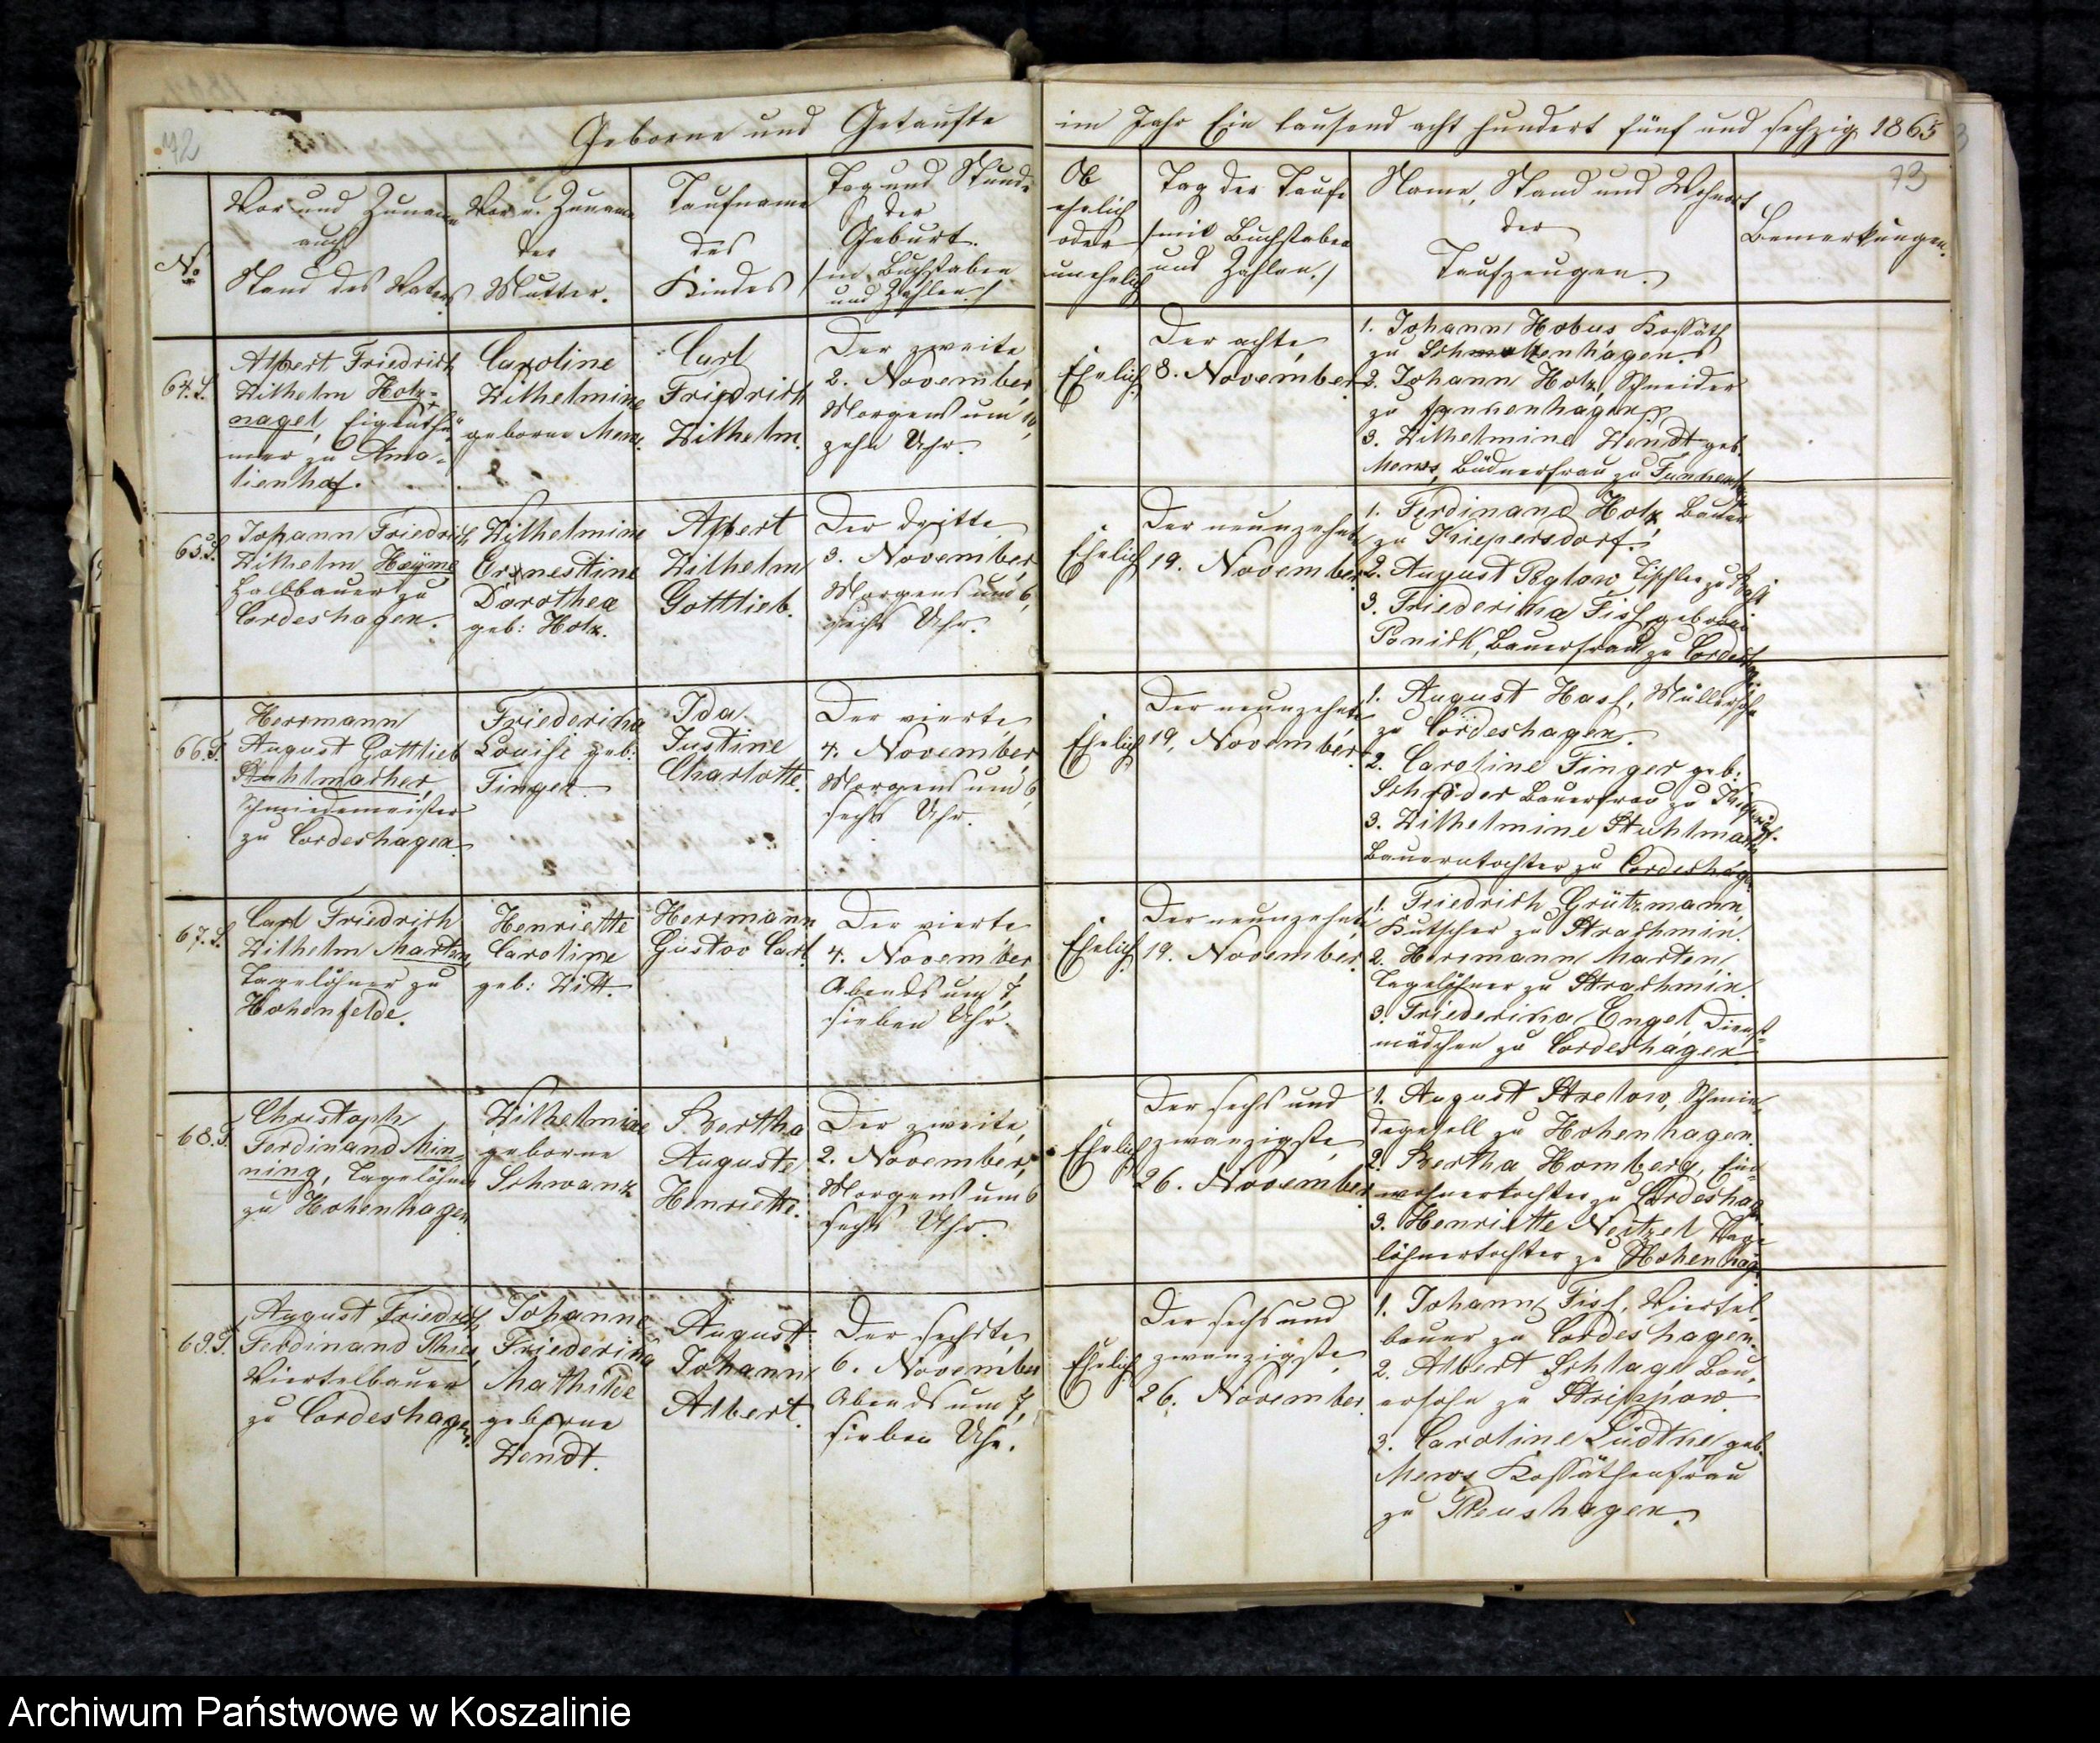 72
Geborne und Getaufte
im Jahr Ein tausend acht hundert fünf und sechzig 1865
73
No
Vor und Zuname
auch
Stand des Vaters
Vor u. Zuname
der
Mutter.
Taufname
des
Kindes
Tag und Stunde
der
Geburt.
/in Buchstaben
und Zahlen./
Ob
ehelich
oder
unehelich
Tag der Taufe
/mit Buchstaben
und Zahlen./
Name, Stand und Wohnort
der
Taufzeugen.
Bemerkungen.
64.S.
Albert Friedrich
Wilhelm Holz=
nagel, Eigenthü=
mer zu Ama=
lienhof.
Caroline
Wilhelmine
geborne Mews.
Carl
Friedrich
Wilhelm.
Der zweite,
2. November,
Morgens um 10,
zehn Uhr.
Ehelich
Der achte,
8. November.
1. Johann Hobus Kossäth
zu Schmolzenhagen.
2. Johann Holz, Schneider
zu Funkenhagen
3. Wilhelmine Wendt geb.
Mews, Büdnerfrau zu Funkenhagen
65.S.
Johann Friedrich
Wilhelm Heyme
Halbbauer zu
Cordeshagen.
Wilhelmine
Ernestine
Dorothea
geb: Holz.
Albert
Wilhelm
Gottlieb.
Der dritte,
3. November,
Morgens um 6,
sechs Uhr.
Ehelich
Der neunzehnte
19. November.
1. Ferdinand Holz, Bauer
zu Kiepersdorf.
2. August Poglow, Tischler zu
3. Friederika Fiss, geborne
Ponick, Bauerfrau zu Cordeshagen
66.T.
Herrmann
August Gottlieb
Stuhlmacher,
Schmiedemeister
zu Cordeshagen.
Friederika
Louise geb:
Finger.
Ida
Justine
Charlotte.
Der vierte,
4. November,
Morgens um 6,
sechs Uhr.
Ehelich
Der neunzehnte
19. November.
1. August Hass, Müllersohn
zu Cordeshagen.
2. Caroline Finger geb:
Schröder Bauerfrau zu
3. Wilhelmine Stuhlmacher
Bauerntochter zu Cordeshagen
67.S.
Carl Friedrich
Wilhelm Marten,
Tagelöhner zu
Hohenfelde.
Henriette
Caroline
geb: Witt.
Herrmann
Gustav Carl.
Der vierte,
4. November,
Abends um 7,
sieben Uhr.
Ehelich
Der neunzehnte
19. November.
1. Friedrich Grützmann,
Kutscher zu Strachmin.
2. Herrmann Marten,
Tagelöhner zu Strachmin.
3. Friederika Engel, Dienst=
mädchen zu Cordeshagen
68.T.
Christoph
Ferdinand Min=
ning, Tagelöhner
zu Hohenhagen
Wilhelmine
geborne
Schwanz
Bertha
Auguste
Henriette.
Der zweite,
2. November,
Morgens um 6
sechs Uhr.
Ehelich
Der sechs und
zwanzigste,
26. November.
1. August Strelow, Schmie=
degesell zu Hohenhagen.
2. Bertha Homberg, Ein=
wohnertochter zu Cordeshagen
3. Henriette Neitzel Tage=
löhnertochter zu Hohenhagen
69.S.
August Friedrich
Ferdinand
Viertelbauer
zu Cordeshagen.
Johanne
Friederika
Mathilde
geborne
Wendt.
August
Johann
Albert.
Der sechste,
6. November
Abends um 7,
sieben Uhr.
Ehelich
Der sechs und
zwanzigste,
26. November.
1. Johann Fiss, Viertel=
bauer zu Cordeshagen.
2. Albert Schlage, Bau=
ersohn zu Strippow.
3. Caroline Lüdtke geb.
Mews Kossäthenfrau
zu Pleushagen.
Archiwum Państwowe w Koszalinie